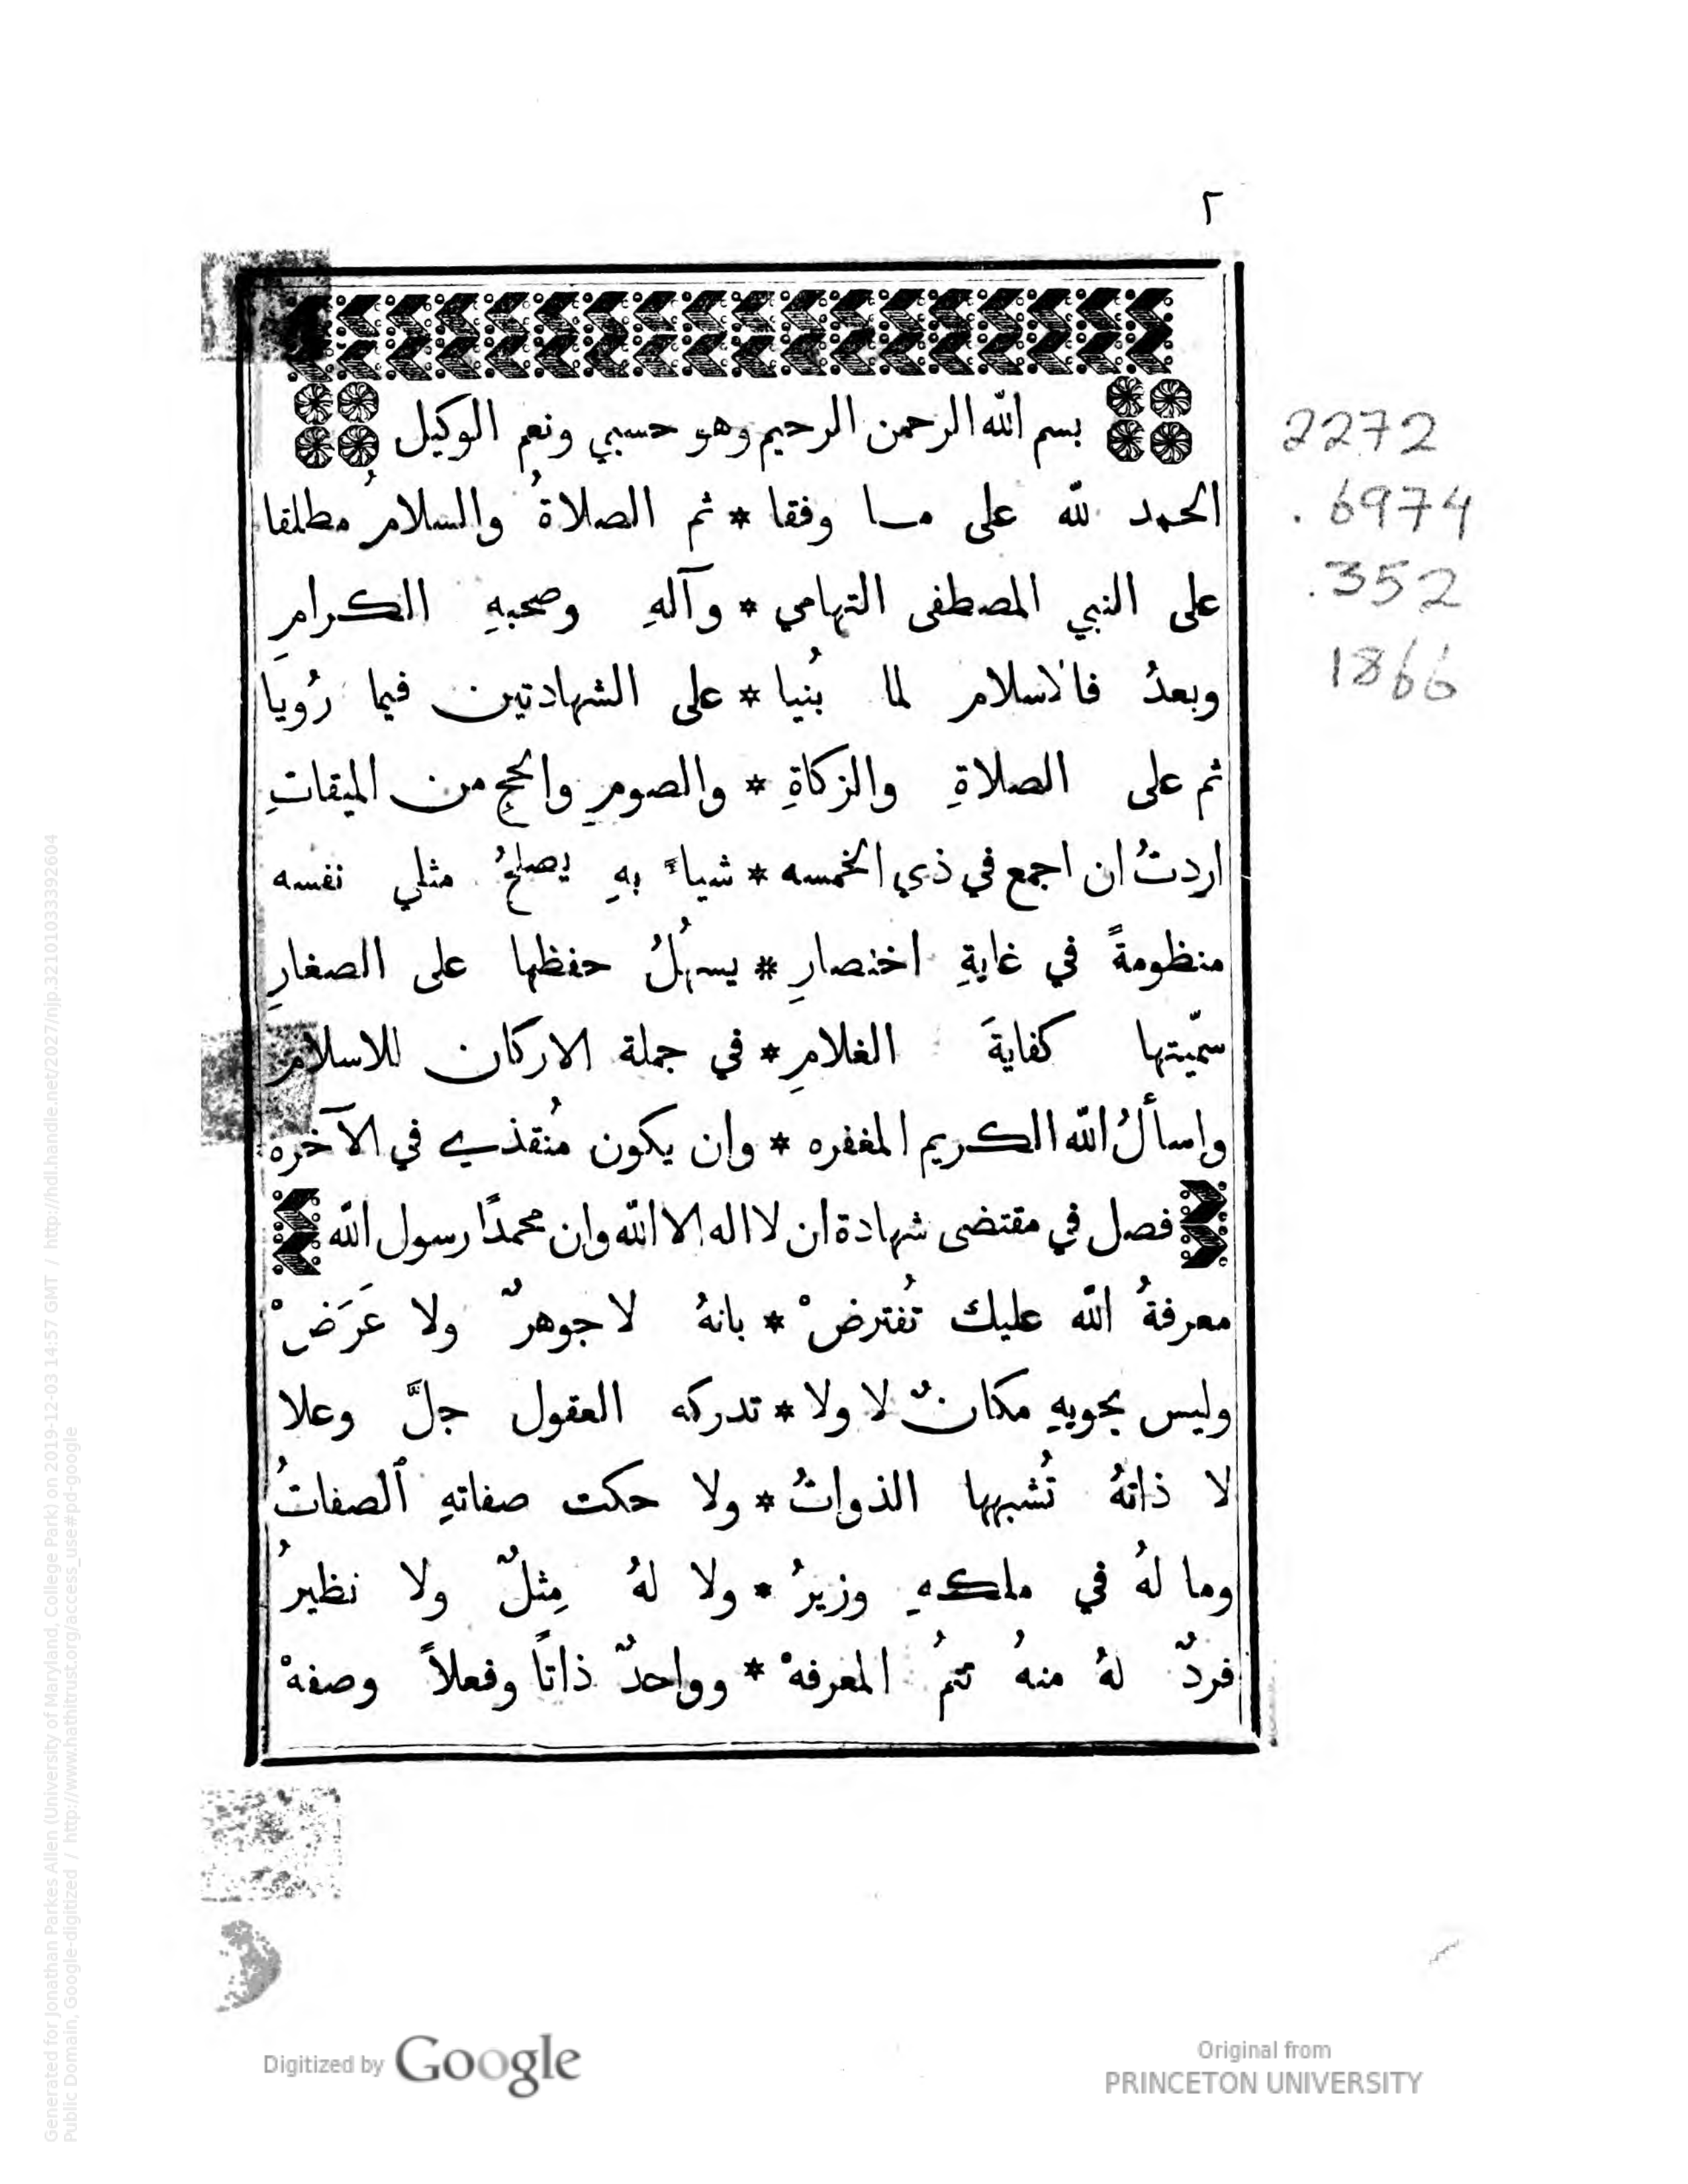 ٢
بسم الله الرحمن الرحيم وهو حسبي ونعم الوكيل
الحمد لله على ما وفقا * ثم الصلاةُ والسلامُ مطلقا
على النبي المصطفى التهامي * وآلهِ وصحبهِ الكرامِ
وبعدُ فالاسلام لما بُنيا * على الشهادتين فيما رُويا
ثم على الصلاةِ والزكاةِ * والصومِ والحجِ من الميقاتِ
اردتُ ان اجمع في ذي الخمسه * شياءً بهِ يصلحُ مثلي نفسه
منظومةً في غايةِ اختصارِ * يسهلُ حفظها على الصغارِ
سمّيتها كفايةَ الغلامِ * في جملة الاركان للاسلام
واسألُ الله الكريم المغفره * وان يكون مُنقذي في الآخره
فصل في مقتضى شهادة ان لا اله الا الله وان محمدًا رسول الله
معرفةُ الله عليك تُفترضْ * بانهُ لا جوهرٌ ولا عَرَضْ
وليس يحويهِ مكانٌ لا ولا * تدركه العقول جلَّ وعلا
لا ذاتهُ تُشبهها الذواتُ * ولا حكت صفاتهِ ٱلصفاتُ
وما لهُ في ملكهِ وزيرُ * ولا لهُ مِثلٌ ولا نظيرُ
فردٌ لهُ منهُ تتمُ المعرفهْ * وواحدٌ ذاتًا وفعلاً وصفهْ
2272
.6974
.352
1866
Generated for Jonathan Parkes Allen (University of Maryland, College Park) on 2019-12-03 14:57 GMT / http://hdl.handle.net/2027/njp.32101033392604
Public Domain, Google-digitized / http://www.hathitrust.org/access_use#pd-google
Digitized by Google
Original from
PRINCETON UNIVERSITY